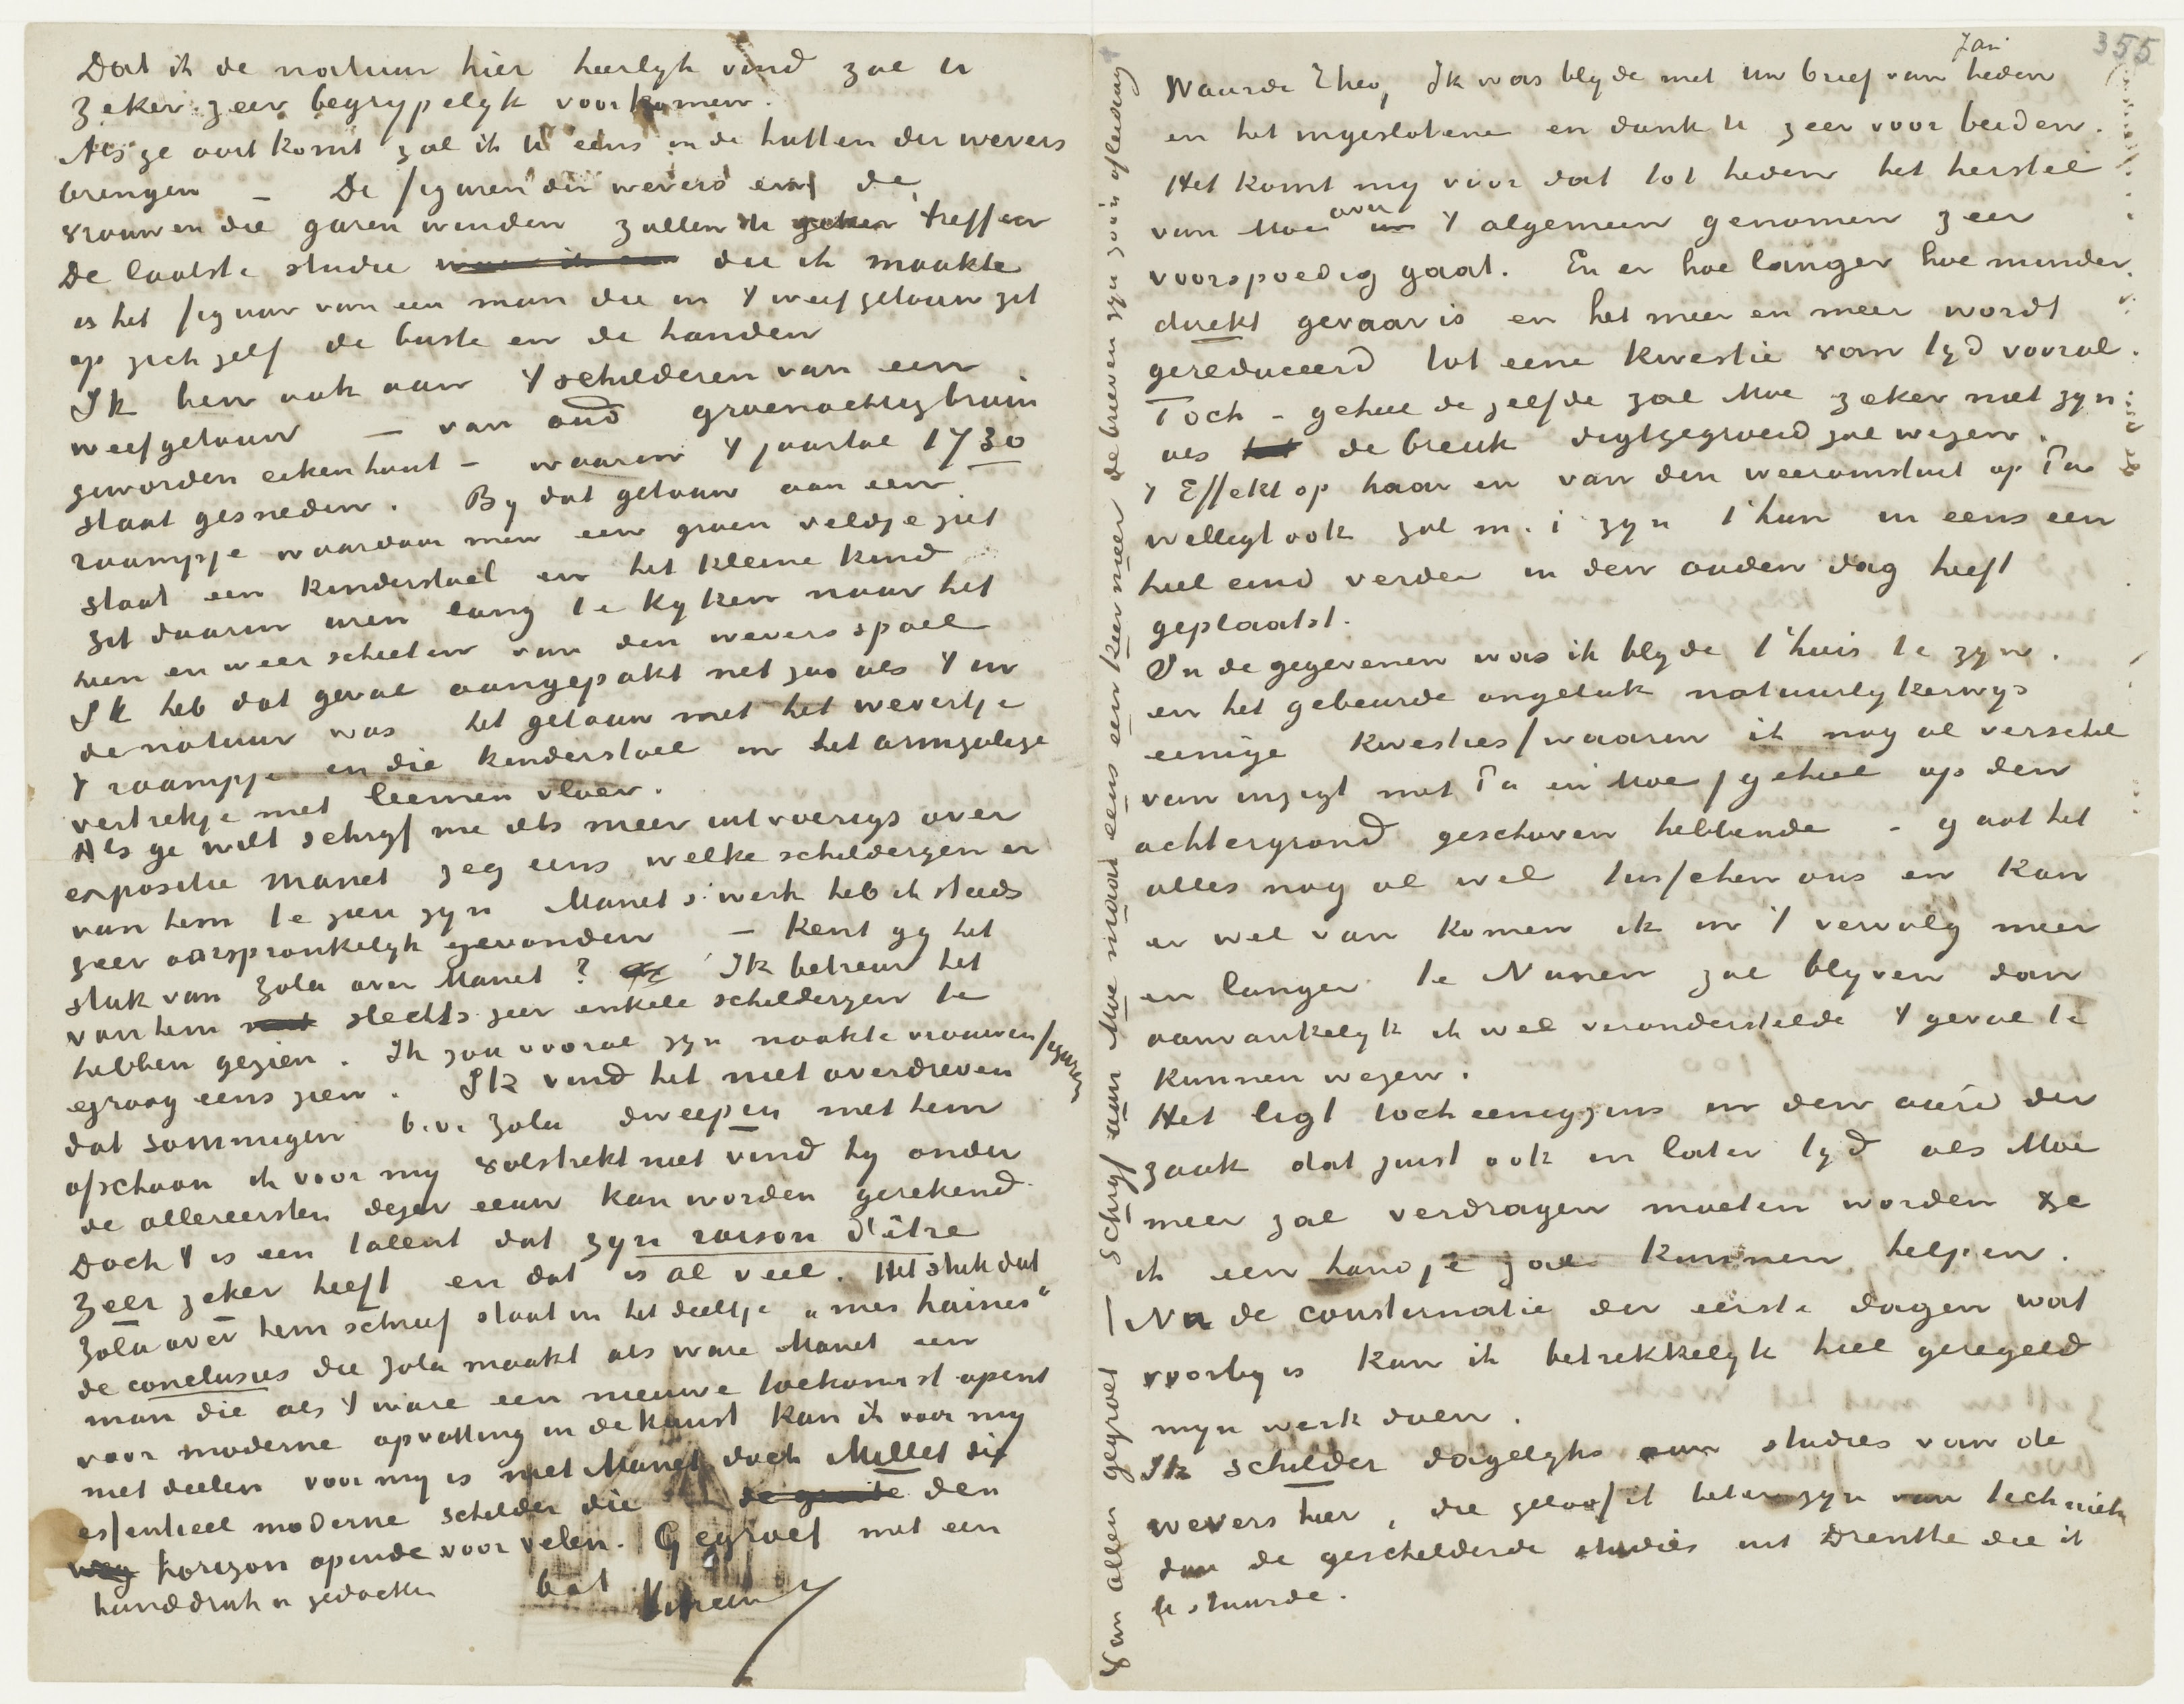 355
Jan
Waarde Theo, Ik was blyde met Uw brief van heden
en het ingeslotene en dank U zeer voor beiden.
Het komt my voor dat tot heden het herstel
van Moe over 't algemeen genomen zeer
voorspoedig gaat. En er hoe langer hoe minder
direkt gevaar is en het meer en meer wordt
gereduceerd tot eene kwestie van tyd vooral.
Toch – geheel dezelfde zal Moe zeker niet zyn
als de breuk digtgegroeid zal wezen.
't Effekt op haar en van den weeromstuit op Pa
welligt ook zal m.i. zyn t hun in eens een
heel eind verder in den ouden dag heeft
geplaatst.
In de gegevenen was ik blyde t'huis te zyn.
en het gebeurde ongeluk natuurlykerwys
eenige kwesties/waarin ik nog al verschil
van inzigt met Pa en Moe/geheel op den
achtergrond geschoven hebbende – gaat het
alles nog al wel tusschen ons en kan
er wel van komen ik in 't vervolg meer
en langer te Nunen zal blyven dan
aanvankelyk ik wel veronderstelde 't geval te
kunnen wezen.
Het ligt toch eenigzins in den aard der
zaak dat juist ook in later tyd als Moe
meer zal verdragen moeten worden ze
ik een handje zal kunnen helpen.
Nu de consternatie der eerste dagen wat
voorby is kan ik betrekkelyk heel geregeld
myn werk doen.
Ik schilder dagelyks aan studies van de
wevers hier, die geloof ik beter zyn van techniek
dan de geschilderde studies uit Drenthe die ik
U stuurde.
Dat ik de natuur hier heerlyk vind zal U
zeker zeer begrypelyk voorkomen.
Als ge ooit komt zal ik U eens in de hutten der wevers
brengen – De figuren der wevers en de
vrouwen die garen winden zullen U zeker treffen
De laatste studie die ik maakte
is het figuur van een man die in 't weefgetouw zit
op zich zelf de buste en de handen
Ik ben ook aan 't schilderen van een
weefgetouw – van oud groenachtig bruin
geworden eikenhout – waarin 't jaartal 1730
staat gesneden. By dat getouw aan een
raampje waardoor men een groen veldje ziet
staat een kinderstoel en het kleine kind
zit daarin uren lang te kyken naar het
heen en weer schieten van den wevers spoel
Ik heb dat geval aangepakt net zoo als 't in
de natuur was het getouw met het wevertje
't raampje en die kinderstoel in het armzalige
vertrekje met leemen vloer.
Als ge wilt schryf me iets meer uitvoerigs over
expositie Manet zeg eens welke schilderyen er
van hem te zien zyn Manet's werk heb ik steeds
zeer oorspronkelyk gevonden – Kent gy het
stuk van Zola over Manet? Ik betreur het
van hem slechts zeer enkele schilderyen te
hebben gezien. Ik zou vooral zyn naakte vrouwenfiguren
graag eens zien. Ik vind het niet overdreven
dat sommigen b.v. Zola dweepen met hem
ofschoon ik voor my volstrekt niet vind hy onder
de allereersten dezer eeuw kan worden gerekend.
Doch 't is een talent dat zyn raison d'être
zeer zeker heeft en dat is al veel. Het stuk dat
Zola over hem schreef staat in het deeltje „mes haines"
de conclusies die Zola maakt als ware Manet een
man die als 't ware een nieuwe toekomst opent
voor moderne opvatting in de kunst kan ik voor my
niet deelen voor my is niet Manet doch Millet die
essentieel moderne schilder die den
horizon opende voor velen. Gegroet met een
handdruk in gedachten
b à t Vincent
van allen gegroet – schryf aan Moe niaad eens een keer meer de brieven zyn zoo'n afleiding